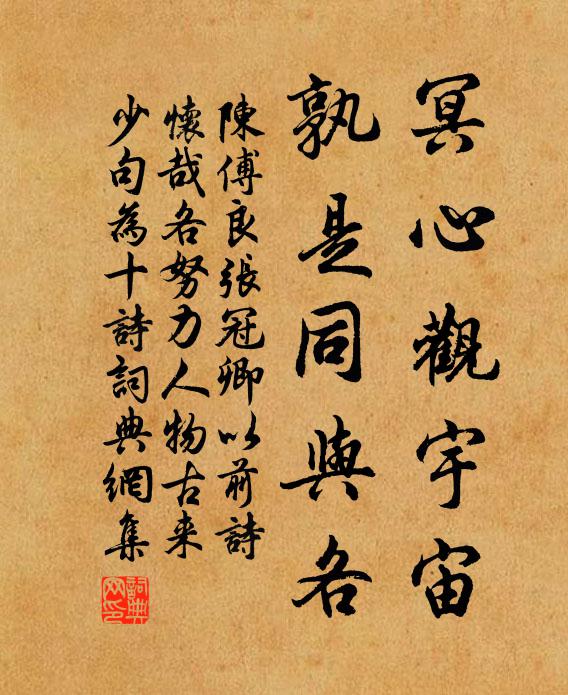 冥心觀宇宙
孰是同與各
陳傅良張冠卿以前詩
懷哉各努力人物古来
少句為十詩詞典網集
詞典網印